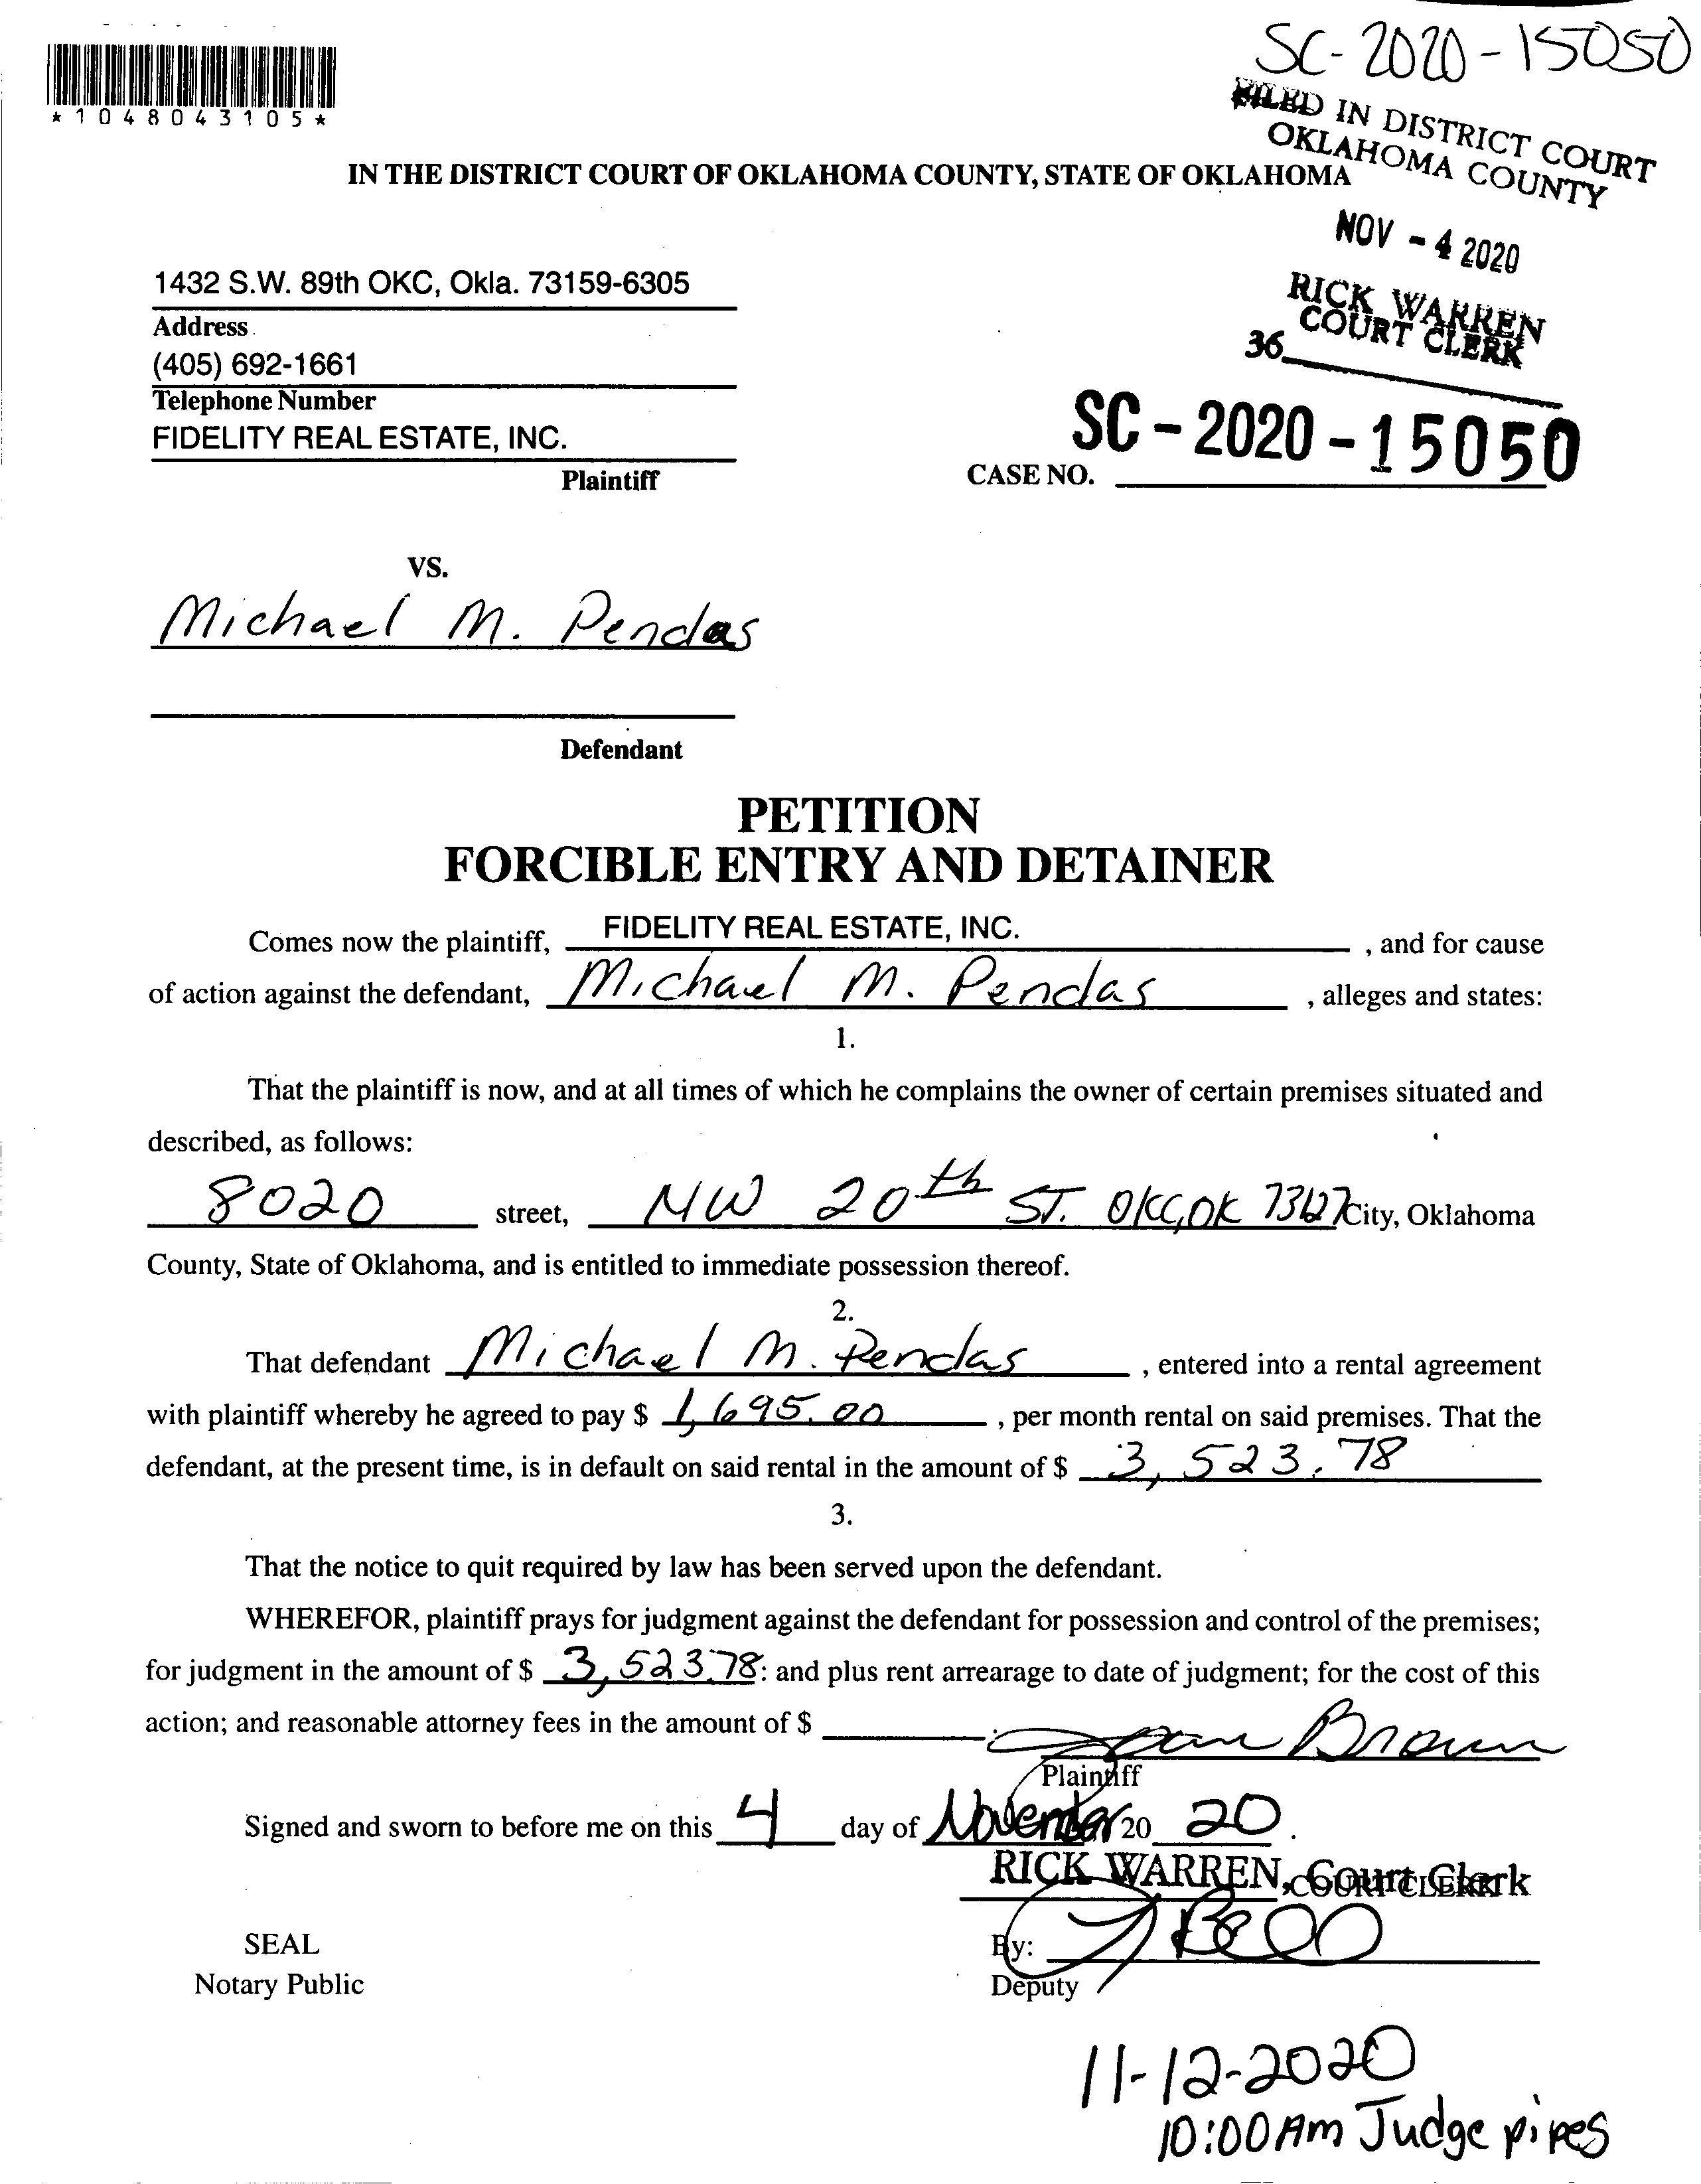 SC-2020-15050
*1048043105*
FILED IN DISTRICT COURT
OKLAHOMA COUNTY
IN THE DISTRICT COURT OF OKLAHOMA COUNTY, STATE OF OKLAHOMA
NOV - 4 2020
RICK WARREN
COURT CLERK
36
1432 S.W. 89th OKC, Okla. 73159-6305
Address
(405) 692-1661
Telephone Number
FIDELITY REAL ESTATE, INC.
Plaintiff
SC-2020-15050
CASE NO.
VS.
Michael M. Pendas
Defendant
PETITION
FORCIBLE ENTRY AND DETAINER
Comes now the plaintiff, FIDELITY REAL ESTATE, INC. , and for cause
of action against the defendant, Michael M. Pendas , alleges and states:
1.
That the plaintiff is now, and at all times of which he complains the owner of certain premises situated and
described, as follows:
8020 street, NW 20th ST. OKC, OK 73127 City, Oklahoma
County, State of Oklahoma, and is entitled to immediate possession thereof.
2.
That defendant Michael M. Pendas , entered into a rental agreement
with plaintiff whereby he agreed to pay $ 1,695.00 , per month rental on said premises. That the
defendant, at the present time, is in default on said rental in the amount of $ 3,523.78
3.
That the notice to quit required by law has been served upon the defendant.
WHEREFOR, plaintiff prays for judgment against the defendant for possession and control of the premises;
for judgment in the amount of $ 3,523.78: and plus rent arrearage to date of judgment; for the cost of this
action; and reasonable attorney fees in the amount of $ .
Brown
Plaintiff
Signed and sworn to before me on this 4 day of November 20 20.
RICK WARREN, Court Clerk
COURT CLERK
SEAL
By:
Notary Public
Deputy
11-12-2020
10:00 Am Judge pipes